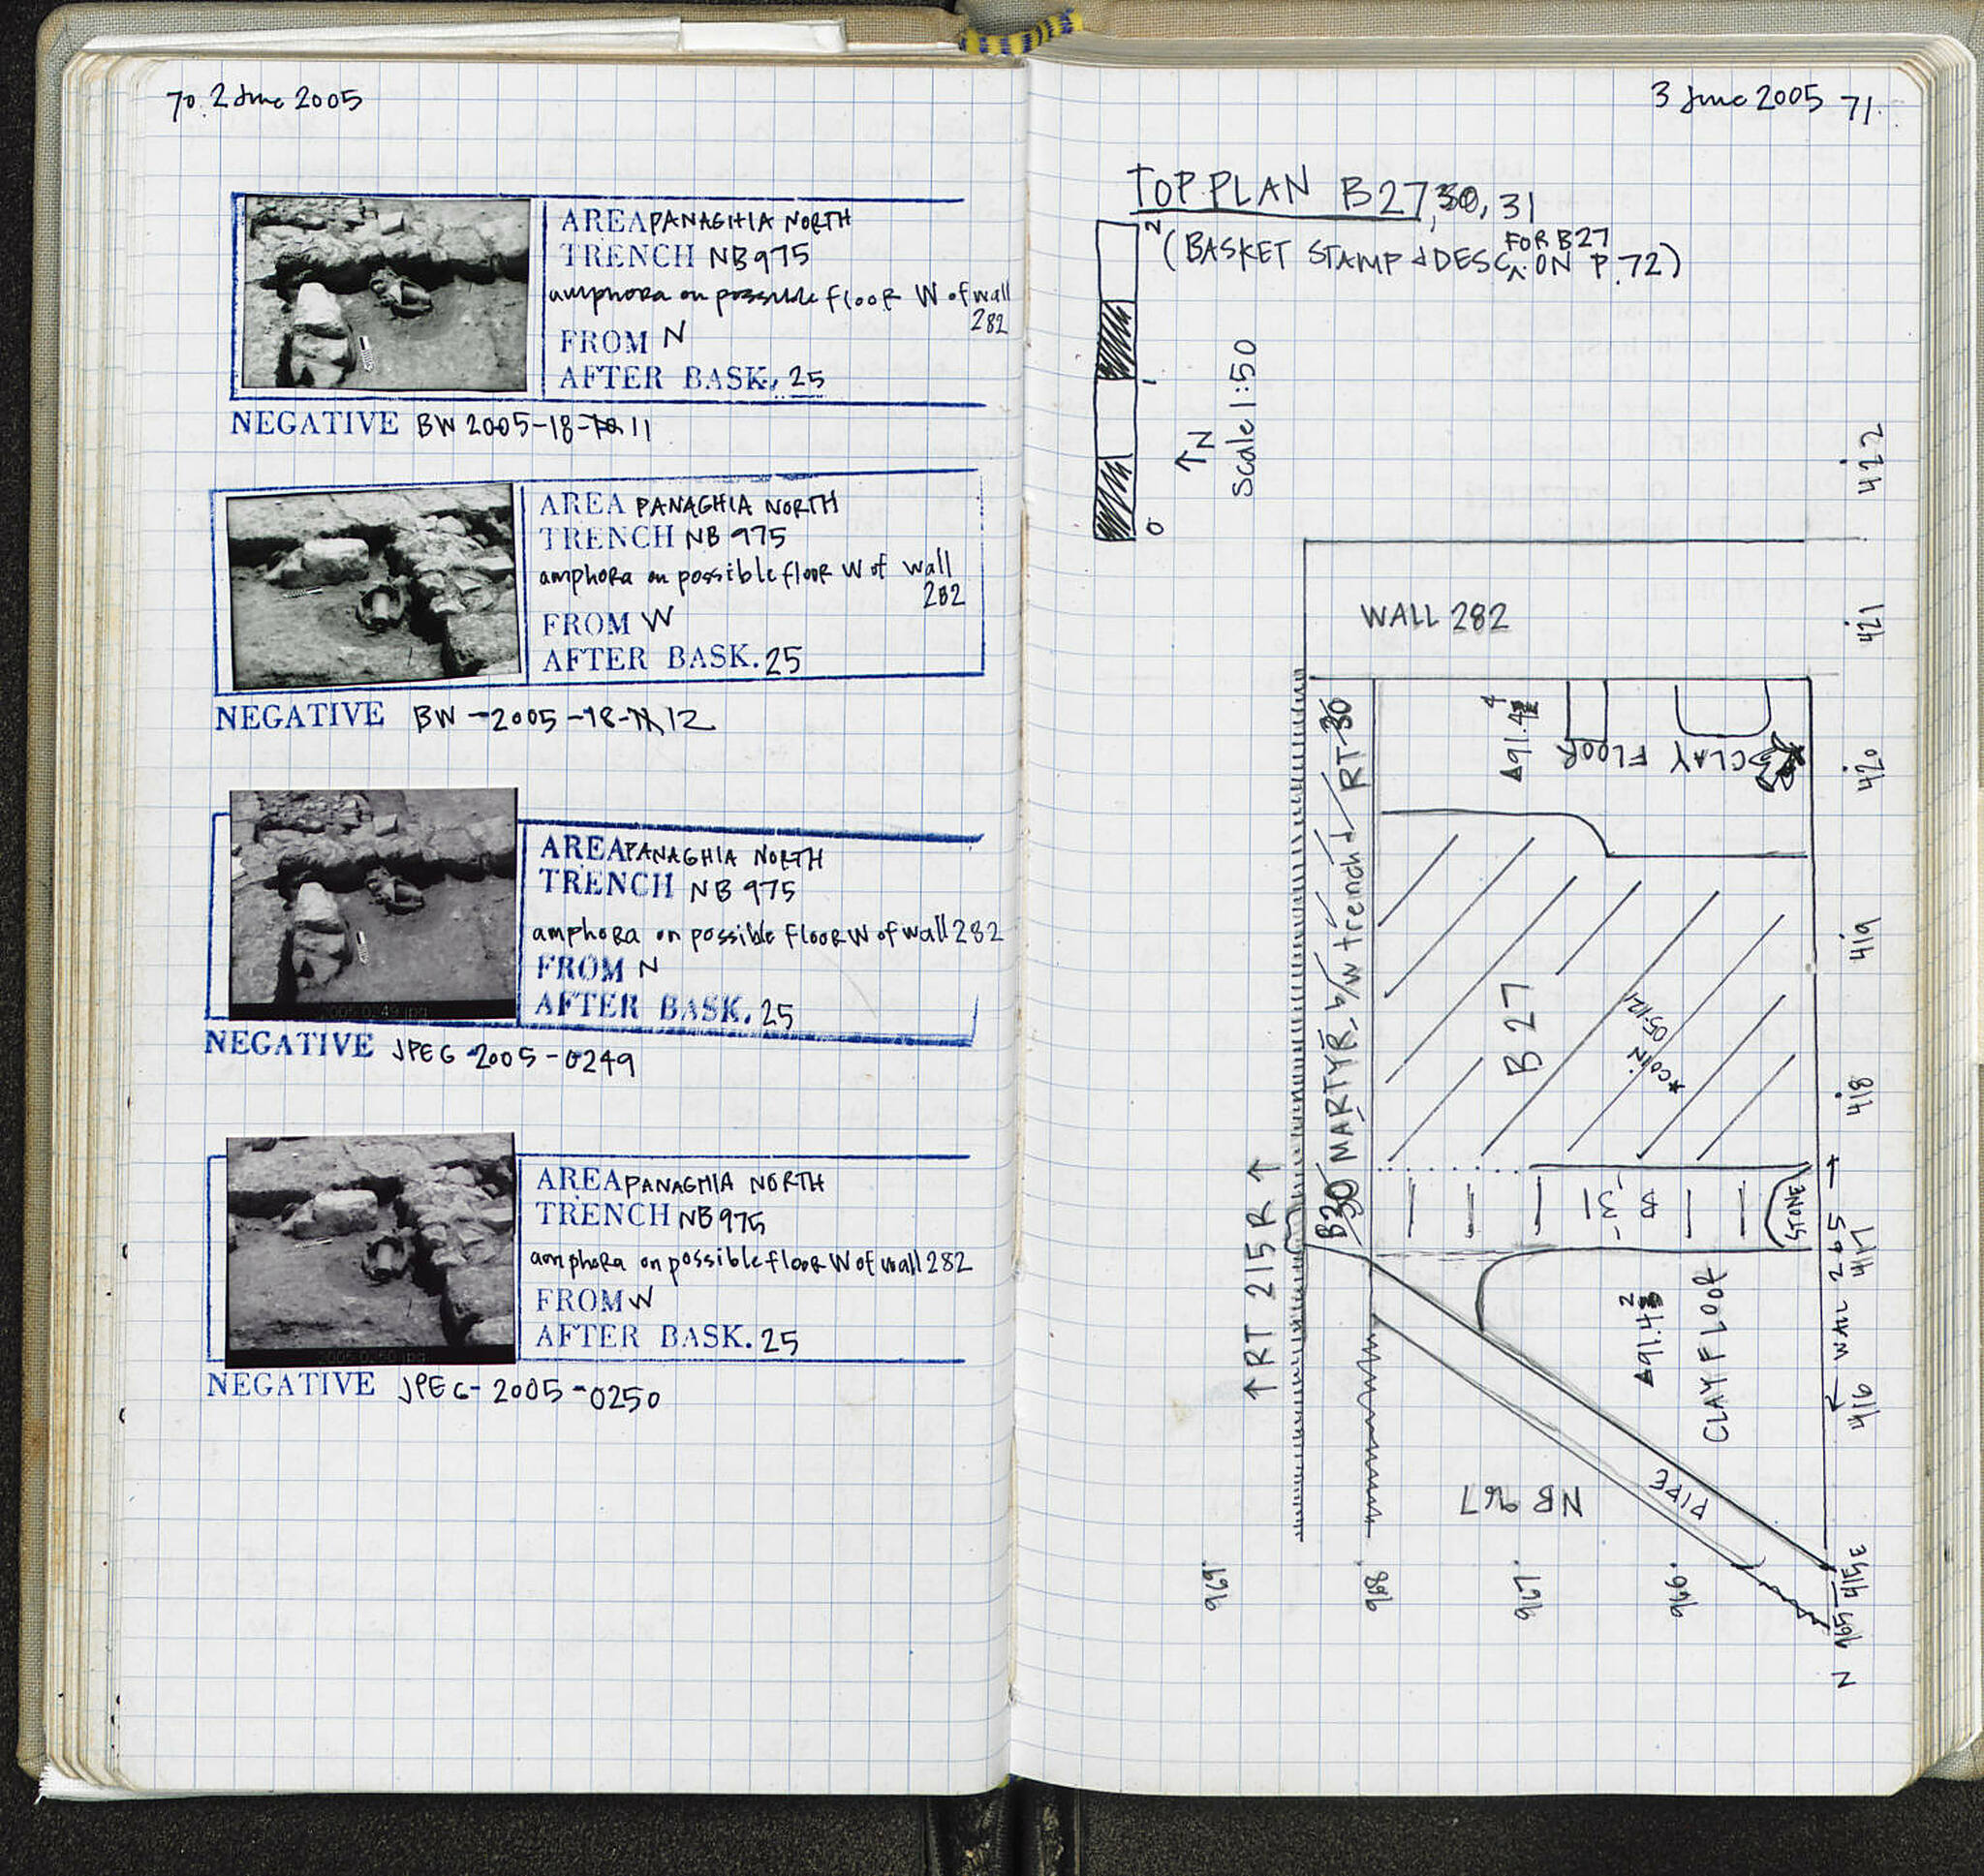 70. 2 June 2005
AREA PANAGHIA NORTH
TRENCH NB 975
amphora on possible floor W of wall
282
FROM N
AFTER BASK. 25
NEGATIVE BW 2005-18-10 11
AREA PANAGHIA NORTH
TRENCH NB 975
amphora on possible floor W of wall
282
FROM W
AFTER BASK. 25
NEGATIVE BW-2005-18-11 12
AREA PANAGHIA NORTH
TRENCH NB 975
amphora on possible floor W of wall 282
FROM N
AFTER BASK. 25
NEGATIVE JPEG 2005-0249
AREA PANAGHIA NORTH
TRENCH NB 975
amphora on possible floor W of wall 282
FROM W
AFTER BASK. 25
NEGATIVE JPEG-2005-0250
3 June 2005 71.
TOP PLAN B27, 30, 31
(BASKET STAMP & DESC. FOR B27 ON P. 72)
2
1
0
↑N
Scale 1:50
422
421
420
419
418
417
416
415E
WALL 282
▵91.44
CLAY FLOOR
B30 MARTYR b/w trench & RT 30
B 27
*COIN 05-121
B 31
STONE
↑ RT 215 R ↑
← WALL 265 →
▵91.42
CLAY FLOOR
PIPE
NB 967
969.
968.
967.
966.
N 965